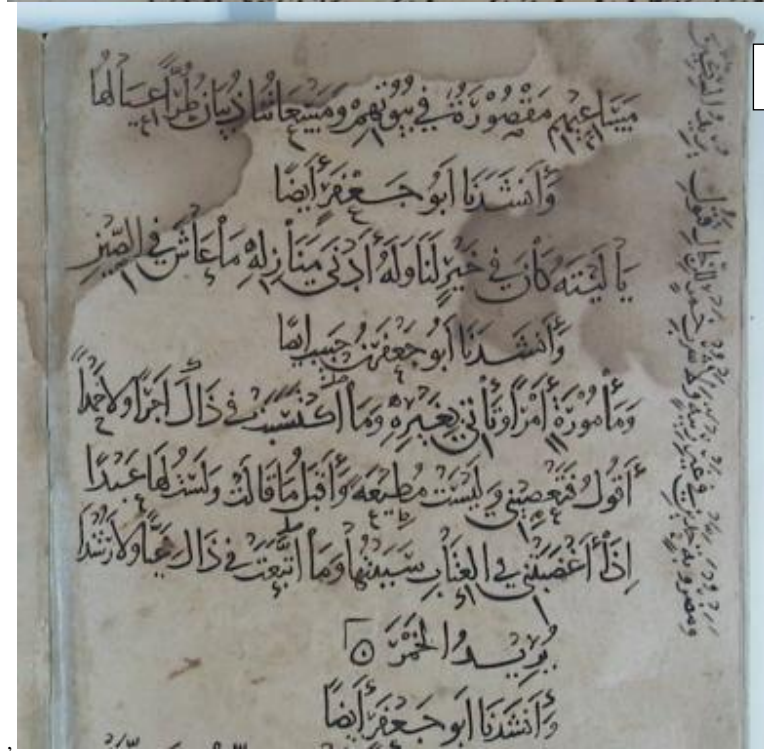 مَسَاعِيهِم مَقْصُورَةٌ فِي بُيُوتِهِمْ وَمَسْعَاتُنَا ذُبْيَانُ طُرًّا عِيَالُهَا
وَأَنْشَدَنَا أَبُو جَعْفَرٍ أَيْضًا
يَا لَيْتَهُ كَانَ فِي خَيْرٍ لَنَا وَلَهُ أَدْنَى مَنَازِلِهِ مَا عَاشَ فِي الصِّينِ
وَأَنْشَدَنَا أَبُو جَعْفَرٍ بْنُ حَبِيبٍ أيضًا
وَمَأْمُورَةٍ أَمْرًا وَتَأْتِي بِغَيْرِهِ وَمَا اكْتَسَبَتْ فِي ذَاكَ أَجْرًا وَلَا حَمْدًا
أَقُولُ فَتَعْصِينِي وَلَيْسَتْ مُطِيعَةً وَأَقْبَلُ مَا قَالَتْ وَلَسْتُ لَهَا عَبْدًا
إِذَا أَغْضَبَتْنِي فِي الْعِتَابِ سَبَيْتُهَا وَمَا اتَّبَعَتْ فِي ذَاكَ غَيًّا وَلَا رُشْدًا
يُرِيدُ الْخَمْرَ
وَأَنْشَدَنَا أَبُو جَعْفَرٍ أَيْضًا